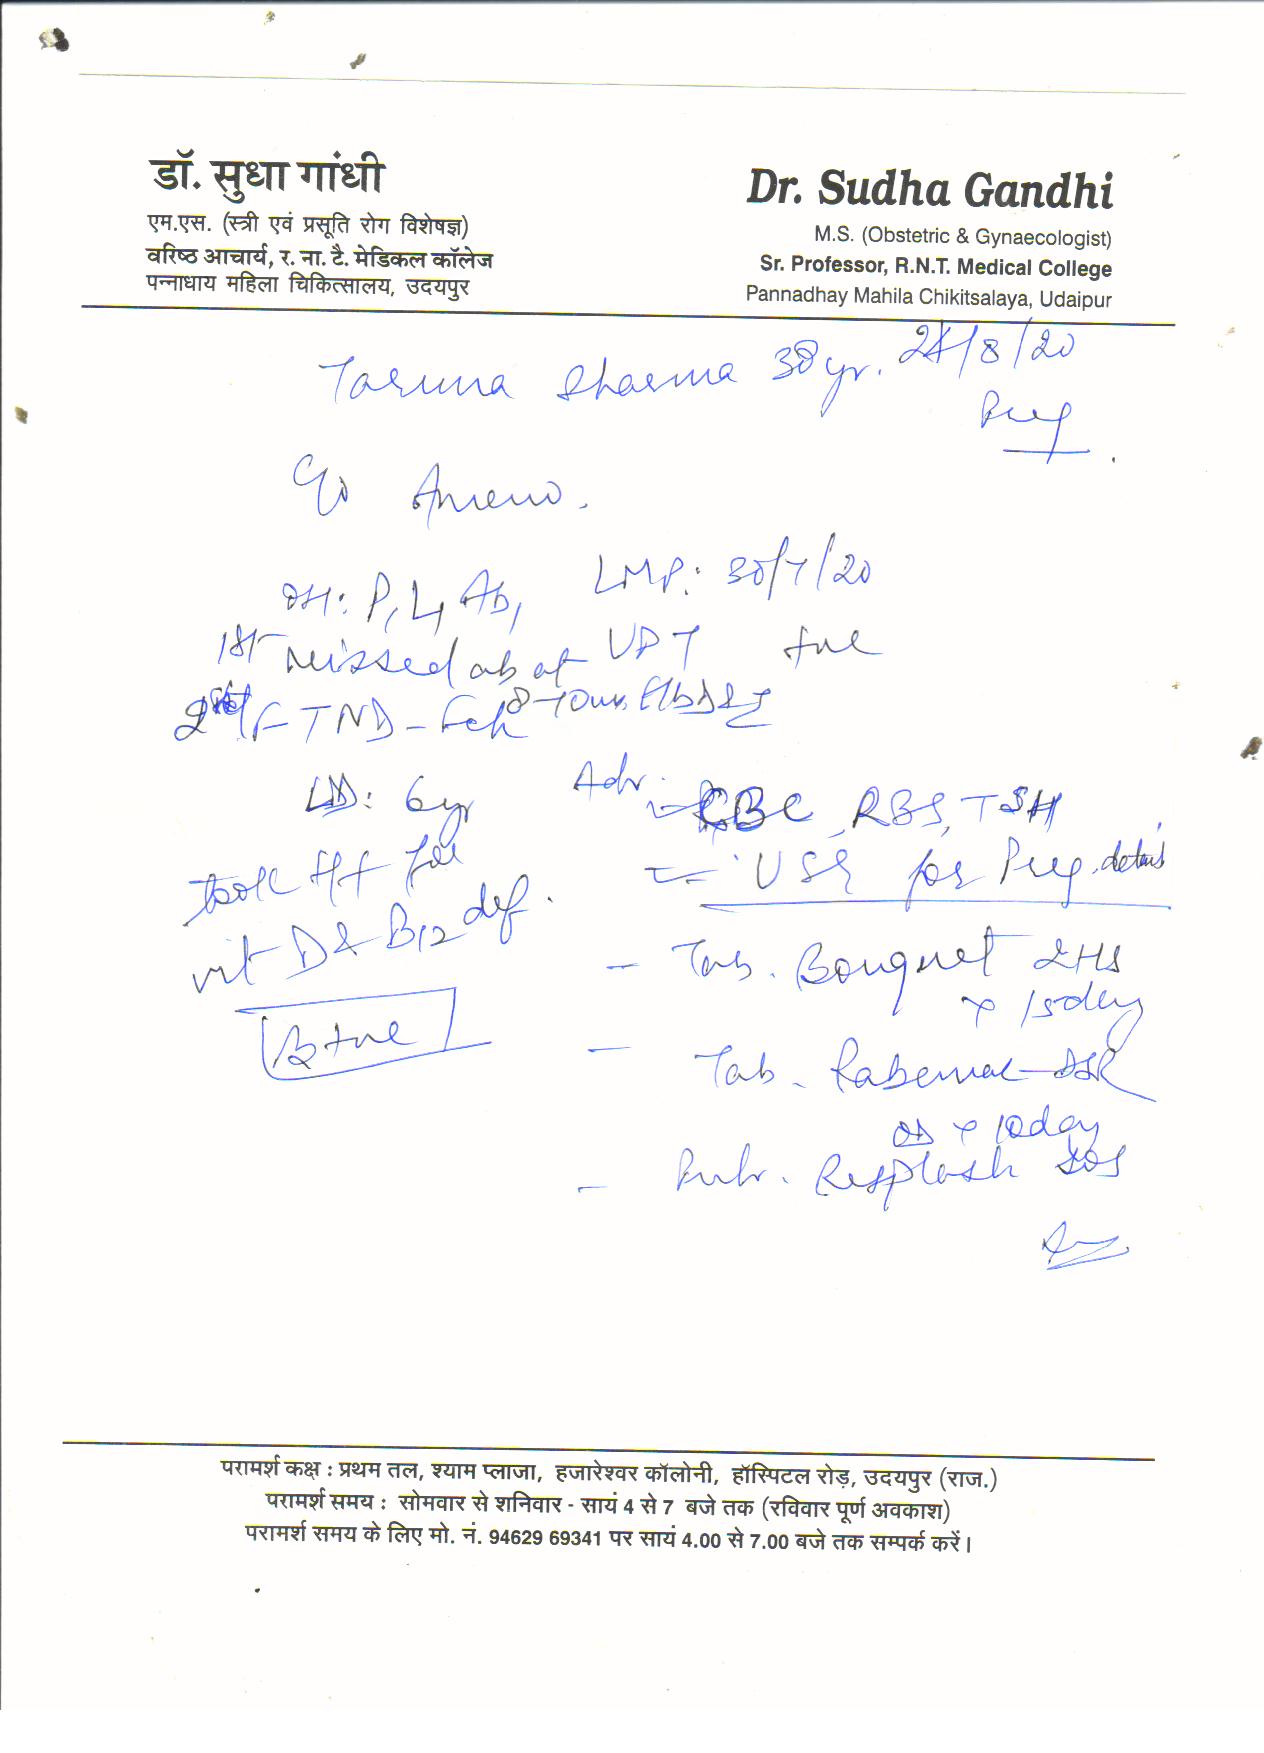 डॉ. सुधा गांधी
एम.एस. (स्त्री एवं प्रसूति रोग विशेषज्ञ)
वरिष्ठ आचार्य, र. ना. टै. मेडिकल कॉलेज
पन्नाधाय महिला चिकित्सालय, उदयपुर
Dr. Sudha Gandhi
M.S. (Obstetric & Gynaecologist)
Sr. Professor, R.N.T. Medical College
Pannadhay Mahila Chikitsalaya, Udaipur
Taruna Sharma yr. /8/20
Preg
C/o Ameno.
OH: P1 L1 Ab1 LMP: 30/7/20
1st missed ab at UPT +ve
FTND - Fch 8-10wks
LD: 6yr
took t/t for
vit D & B12 def.
B +ve
Adv.
CBC, RBS, TSH
USG for Preg. details
- Tab. Bouquet 2HS
x 15day
- Tab. -DSR
OD x 10day
- SOS
परामर्श कक्ष : प्रथम तल, श्याम प्लाजा, हजारेश्वर कॉलोनी, हॉस्पिटल रोड़, उदयपुर (राज.)
परामर्श समय : सोमवार से शनिवार - सायं 4 से 7 बजे तक (रविवार पूर्ण अवकाश)
परामर्श समय के लिए मो. नं. 94629 69341 पर सायं 4.00 से 7.00 बजे तक सम्पर्क करें।